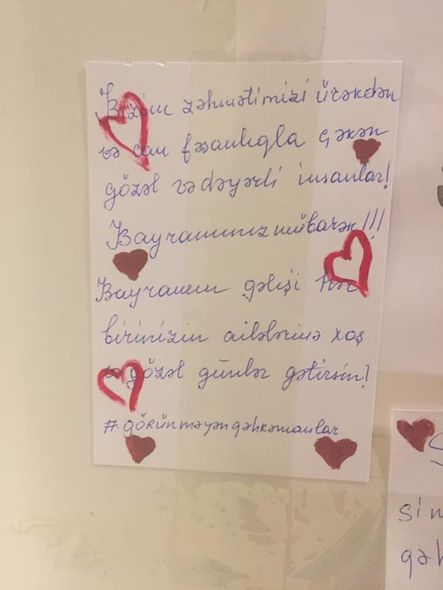 Bizim zəhmətimizi ürəkdən
və can fəsanlıqla çəkən
gözəl və dəyərli insanlar!
Bayramınız mübarək!!!
Bayramın gəlişi hər
birinizin ailələrinə xoş
və gözəl günlər gətirsin!
#görünməyənqəhrəmanlar
S
sin
qəh